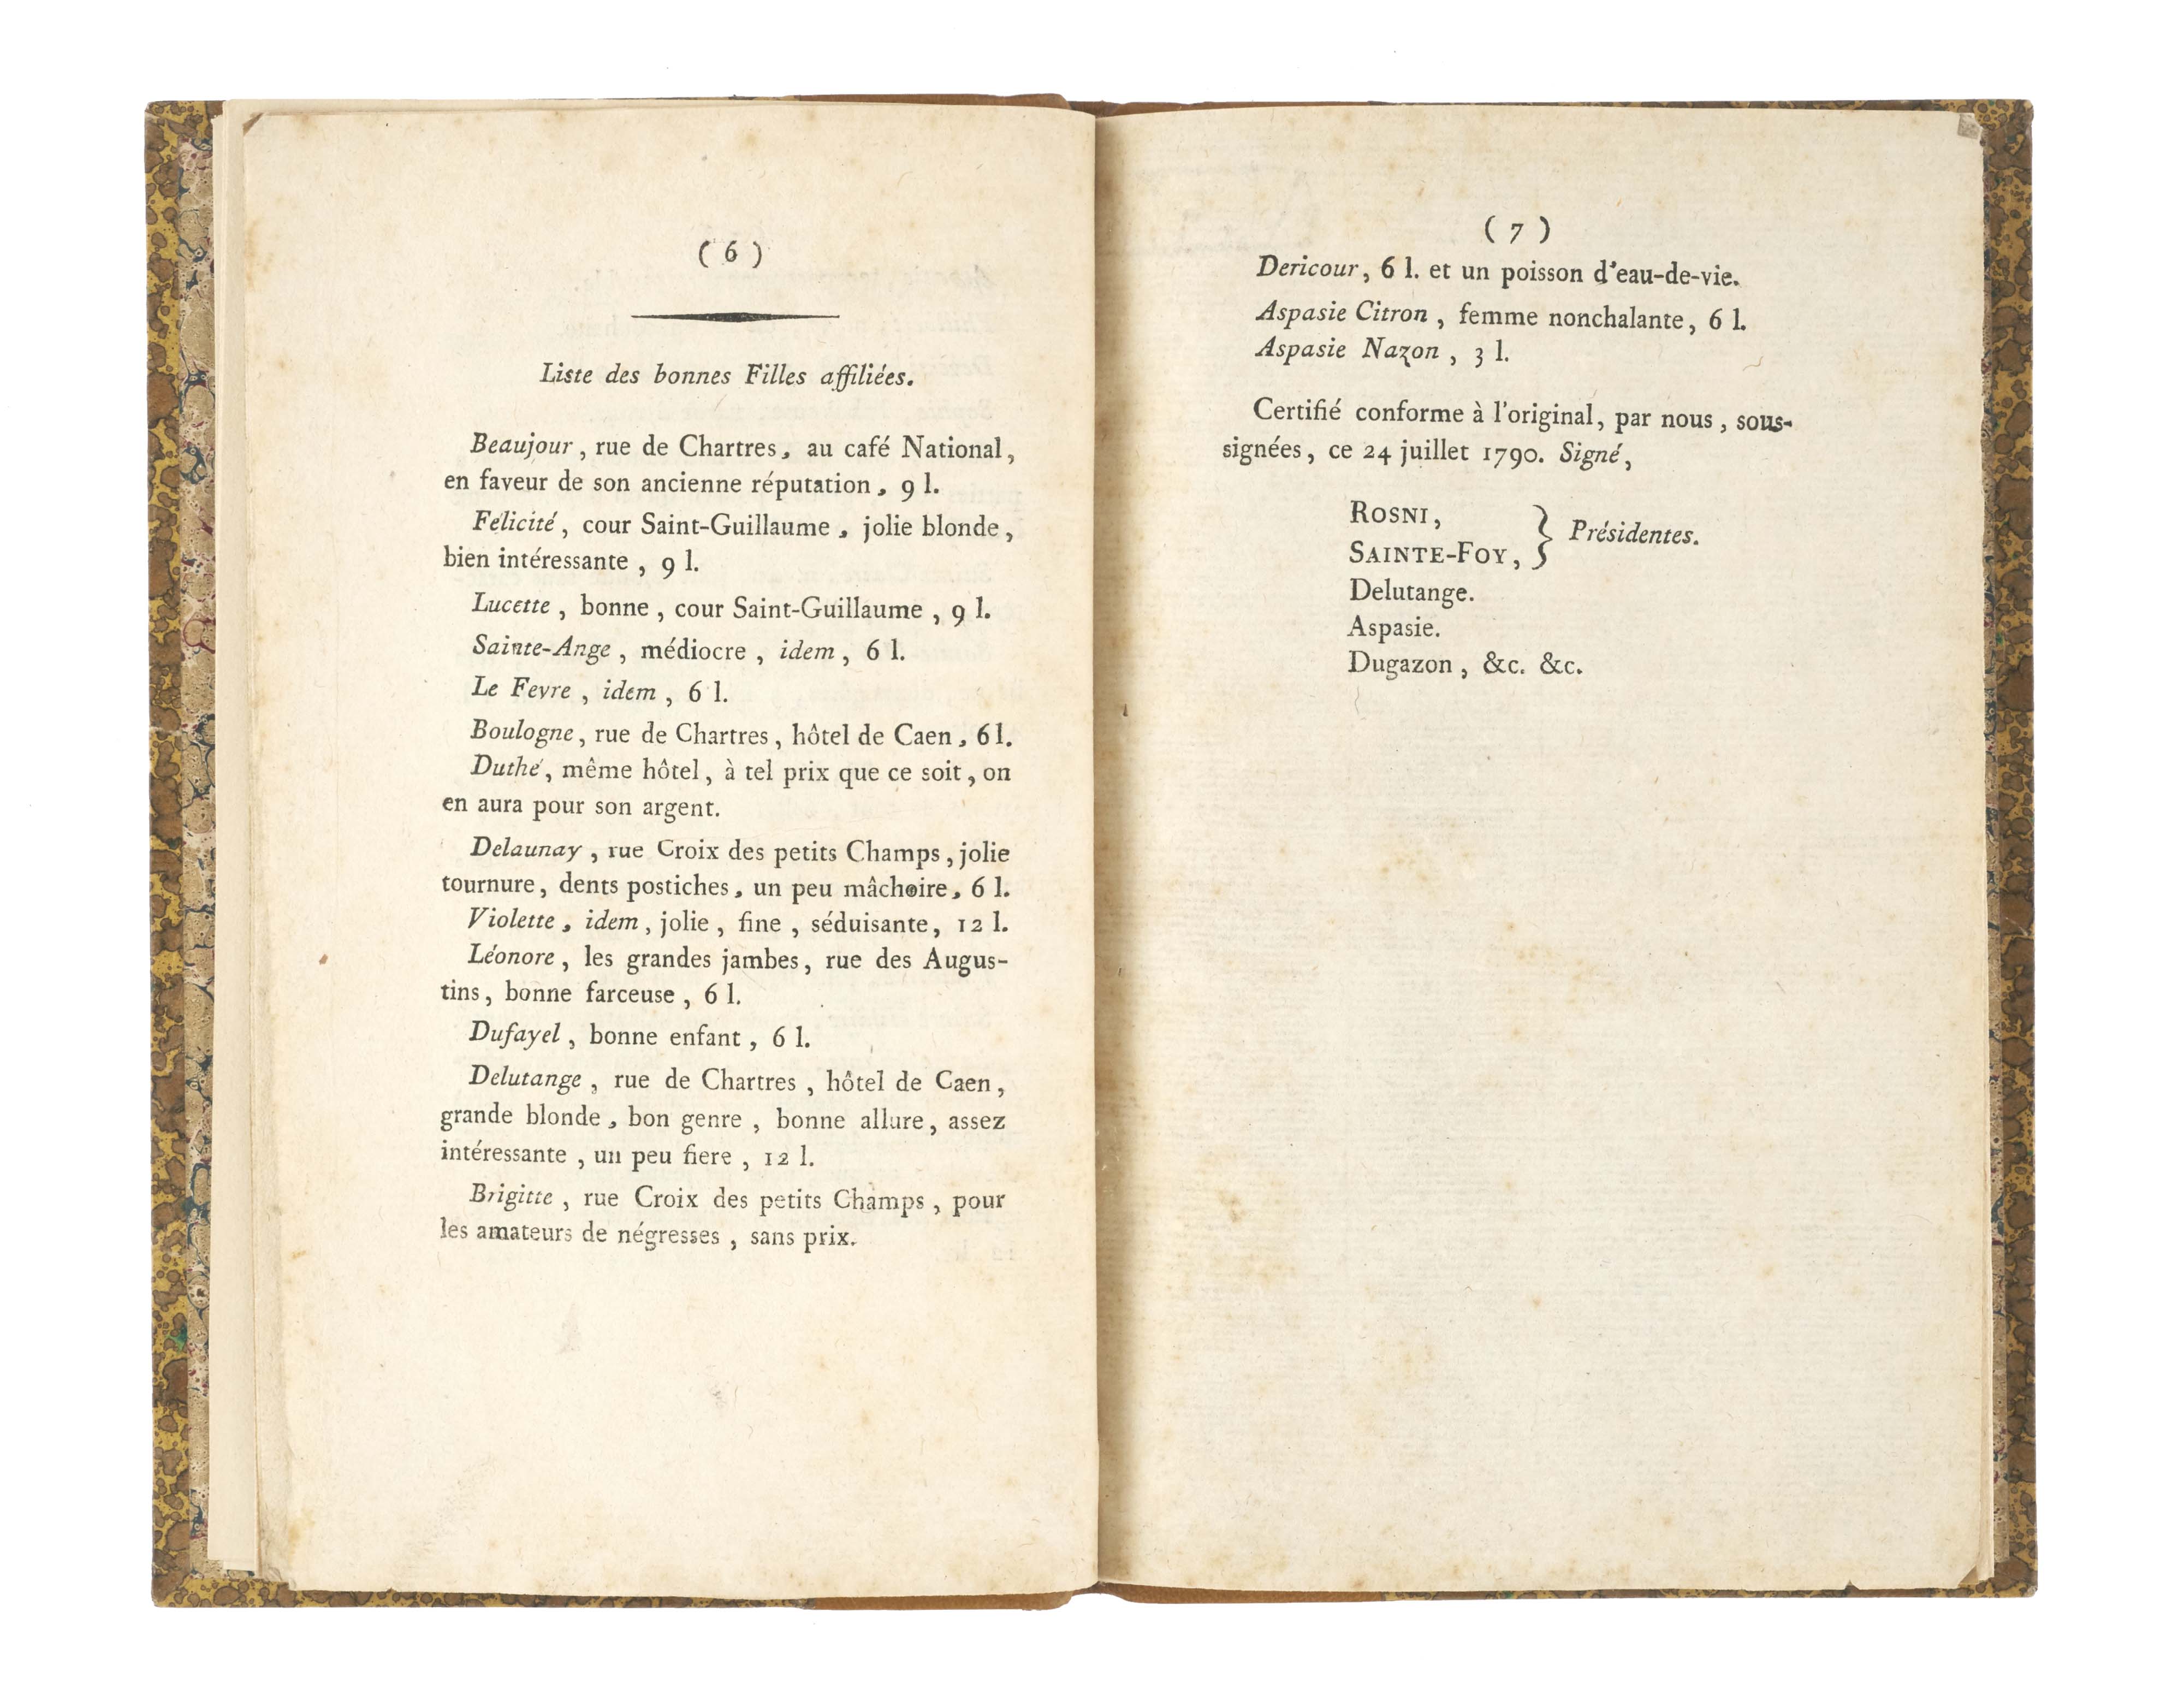 ( 6 )
Liste des bonnes Filles affiliées.
Beaujour, rue de Chartres, au café National,
en faveur de son ancienne réputation, 9 l.
Félicité, cour Saint-Guillaume, jolie blonde,
bien intéressante, 9 l.
Lucette, bonne, cour Saint-Guillaume, 9 l.
Sainte-Ange, médiocre, idem, 6 l.
Le Fevre, idem, 6 l.
Boulogne, rue de Chartres, hôtel de Caen, 6 l.
Duthé, même hôtel, à tel prix que ce soit, on
en aura pour son argent.
Delaunay, rue Croix des petits Champs, jolie
tournure, dents postiches, un peu mâchoire, 6 l.
Violette, idem, jolie, fine, séduisante, 12 l.
Léonore, les grandes jambes, rue des Augus-
tins, bonne farceuse, 6 l.
Dufayel, bonne enfant, 6 l.
Delutange, rue de Chartres, hôtel de Caen,
grande blonde, bon genre, bonne allure, assez
intéressante, un peu fiere, 12 l.
Brigitte, rue Croix des petits Champs, pour
les amateurs de négresses, sans prix.
( 7 )
Dericour, 6 l. et un poisson d'eau-de-vie.
Aspasie Citron, femme nonchalante, 6 l.
Aspasie Nazon, 3 l.
Certifié conforme à l'original, par nous, sous-
signées, ce 24 juillet 1790. Signé,
ROSNI,
SAINTE-FOY, } Présidentes.
Delutange.
Aspasie.
Dugazon, &c. &c.